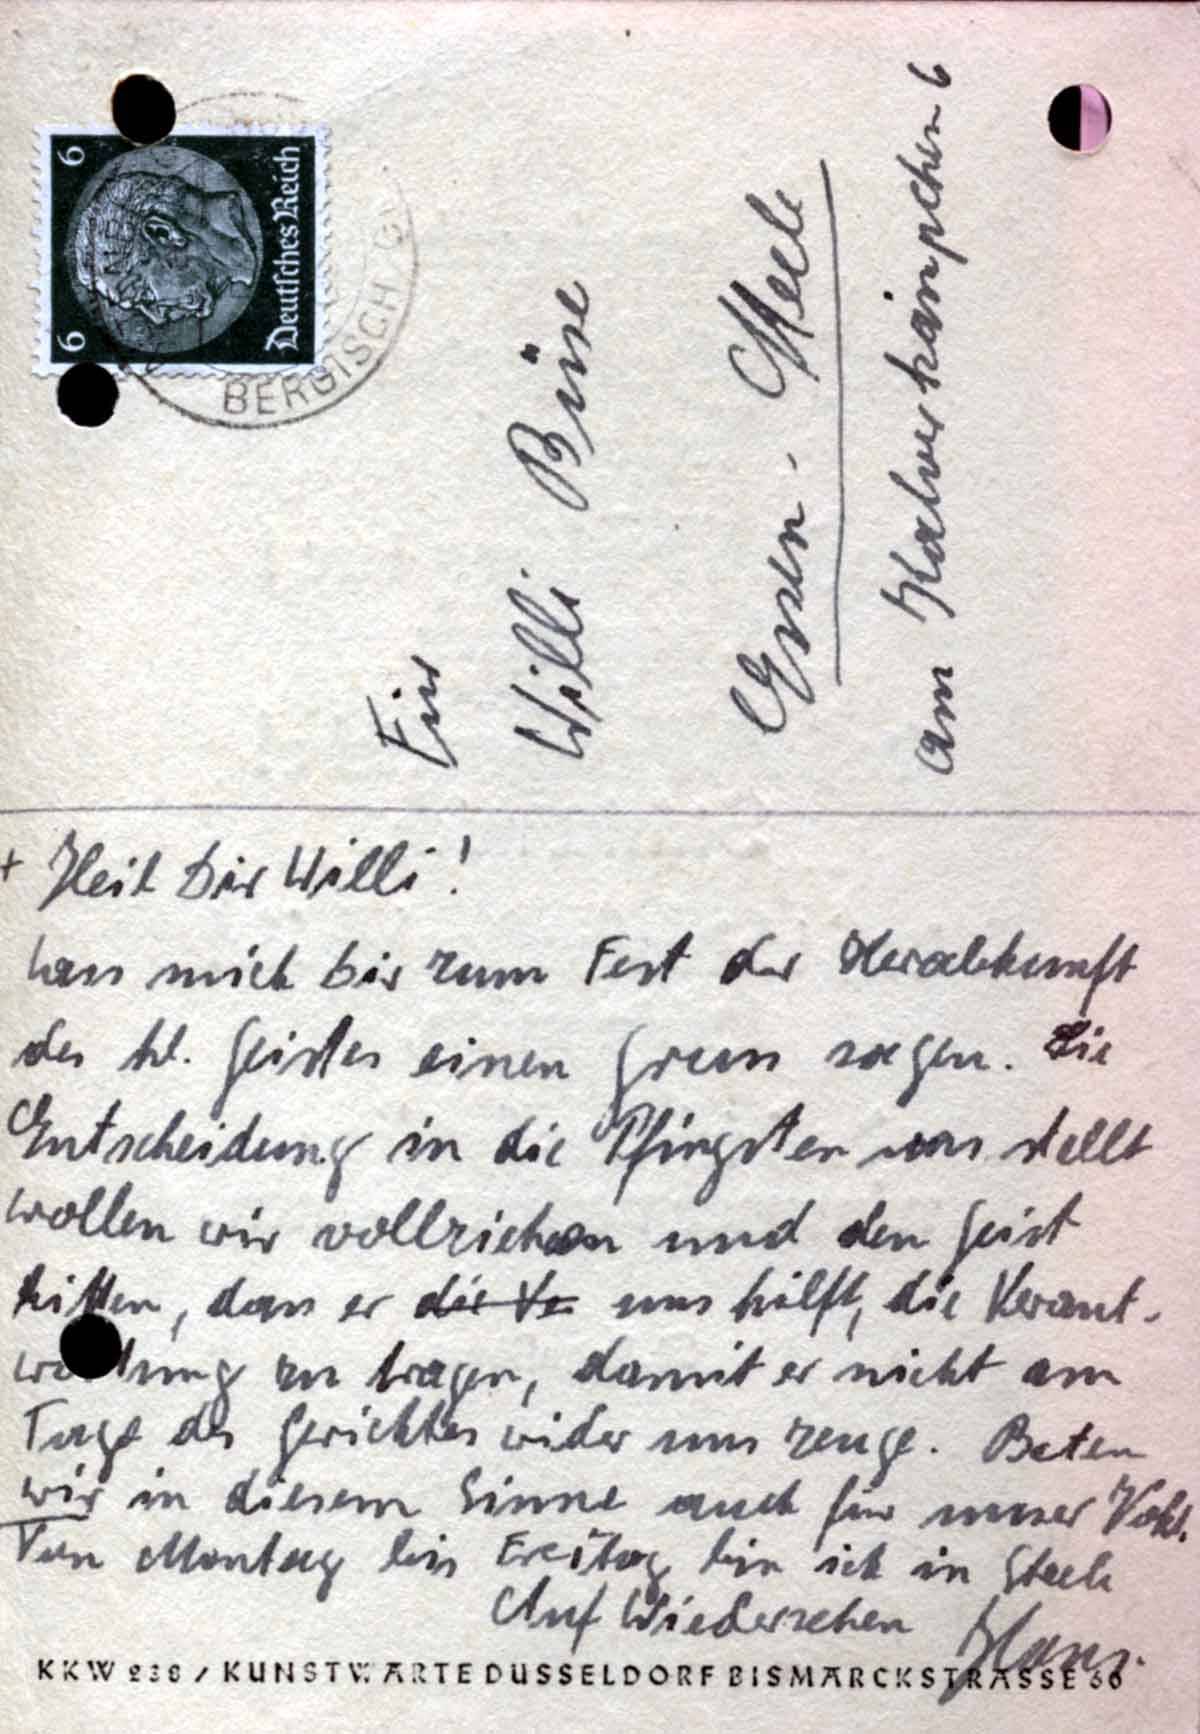 6
6
Deutsches Reich
BERGISCH G
Für
Willi Büse
Essen-Steele
am Kalverkämpchen 6
+ Heil dir Willi!
Lass mich dir zum Fest der Herabkunft
des hl. Geistes einen Gruss sagen. Die
Entscheidung in die Pfingsten uns stellt
wollen wir vollziehen und den Geist
bitten, dass er die Ve uns hilft, die Verant-
wortung zu tragen, damit er nicht am
Tage des Gerichtes wider uns zeuge. Beten
wir in diesem Sinne auch für unser Volk.
Von Montag bis Freitag bin ich in Steele
Auf Wiedersehen Hans.
KKW 238 / KUNSTWARTE DUSSELDORF BISMARCKSTRASSE 66